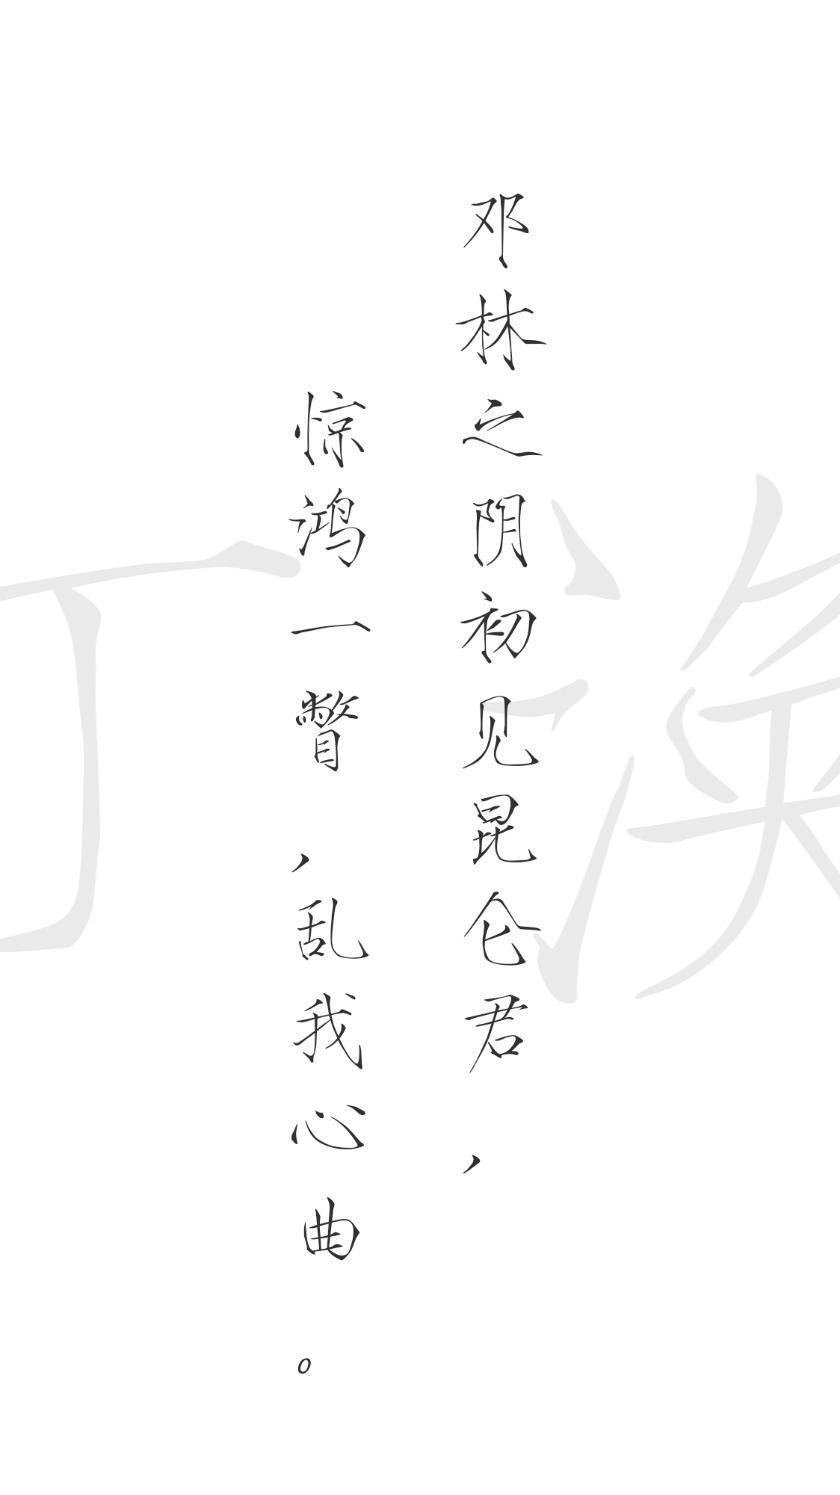 邓林之阴初见昆仑君，
惊鸿一瞥，乱我心曲。